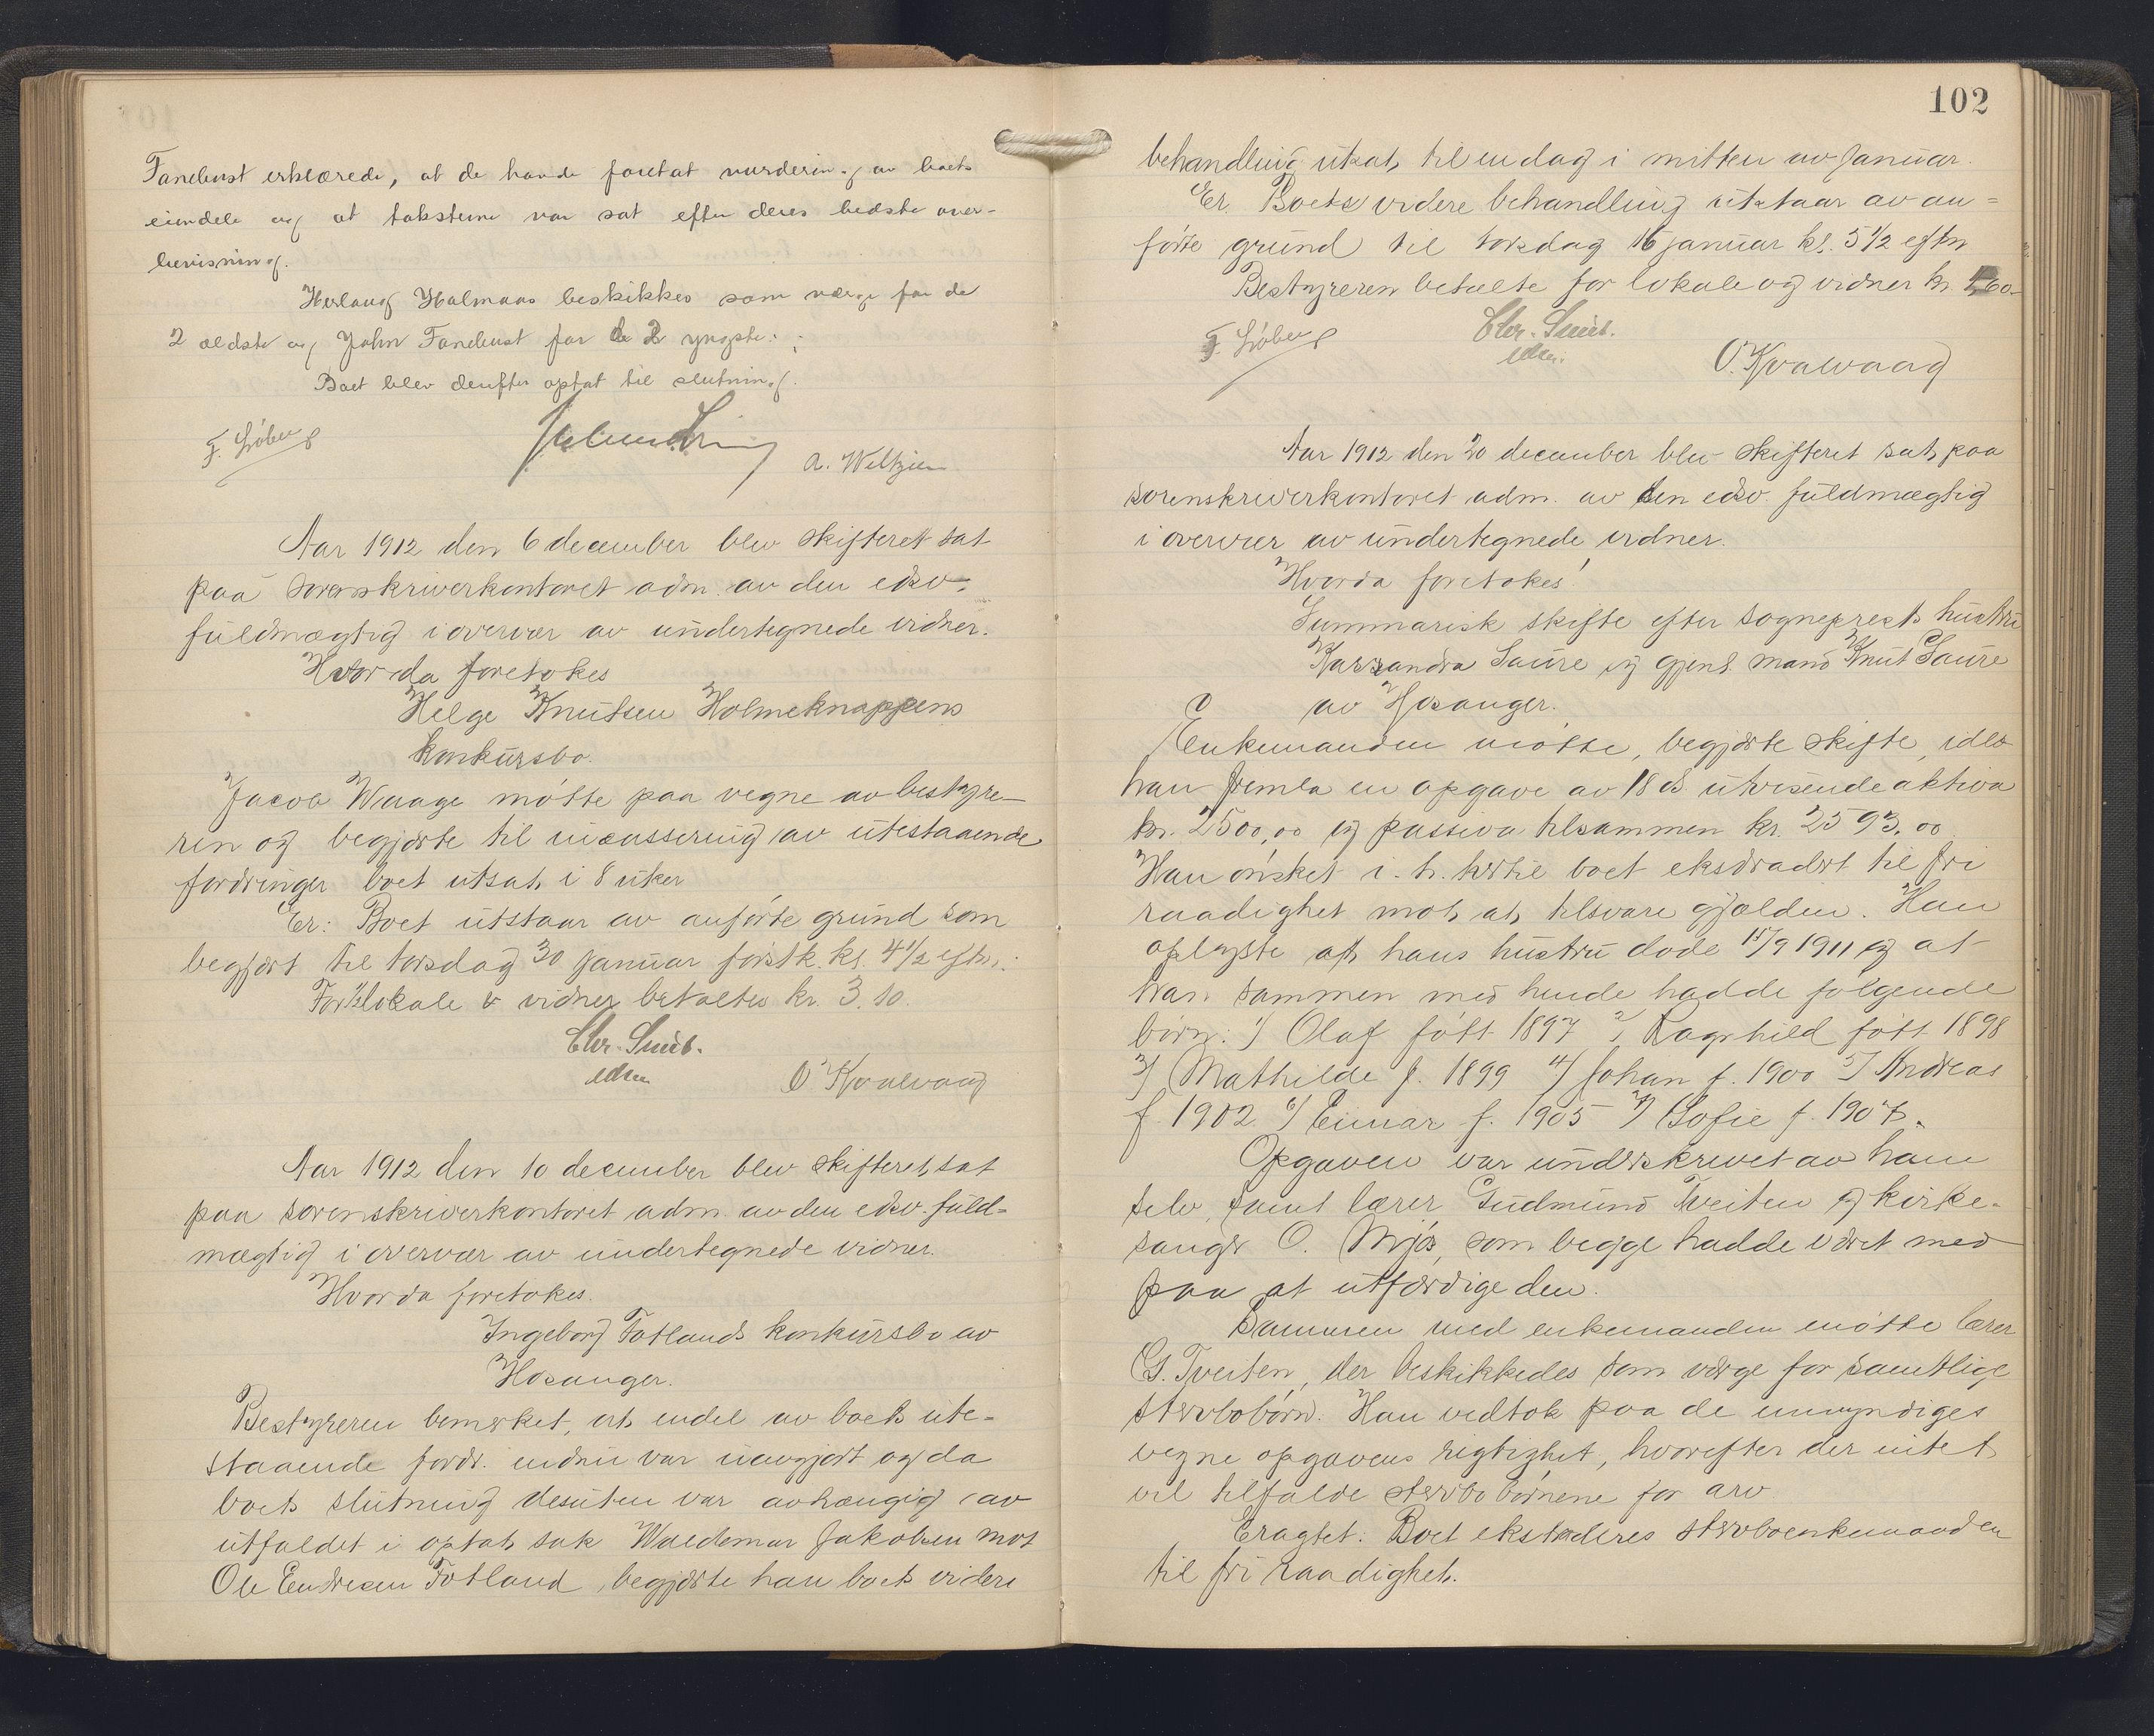 Fanebust erklærede, at de havde foretat vurdering av boets
eiendele og at taksterne var sat efter deres bedste over-
bevisning.
Herlaug Halmaas beskikkes som værge for de
2 ældste og John Fanebust for de 2 yngste.
Boet blev derefter optat til slutning.
F. Løberg
A. Weltzien
Aar 1912 den 6 december blev skifteret sat
paa sorenskriverkontoret adm. av den edsv.
fuldmægtig i overvær av undertegnede vidner.
Hvor da foretokes
Helge Knutsen Holmeknappens
konkursbo.
Jacob Waage møtte paa vegne av bestyre-
ren og begjærte til incassering av utestaaende
fordringer boet utsat i 8 uker
Er: Boet utstaar av anførte grund som
begjært til torsdag 30 januar førstk. kl. 4 1/2 eftm.
For lokale & vidner betaltes kr. 3.10.
Chr. Smit.
edsv.
O Kvalvaag
Aar 1912 den 10 december blev skifteret sat
paa sorenskriverkontoret adm. av den edsv. fuld-
mægtig i overvær av undertegnede vidner.
Hvorda foretokes.
Ingeborg Fotlands konkursbo av
Hosanger.
Bestyreren bemerket, at endel av boets ute-
staaende fordr. endnu var uavgjort og da
boets slutning desuten var avhængig av
utfaldet i optat sak Waldemar Jakobsen mot
Ole Endresen Fotland, begjærte han boets videre
102
behandling utsat til en dag i mitten av januar.
Er. Boets videre behandling utstaar av an-
førte grund til torsdag 16 januar kl. 5 1/2 eftm
Bestyreren betalte for lokale og vidner kr.
F. Løberg
Chr. Smit.
edsv.
O. Kvalvaag
Aar 1912 den 20 december blev skifteret sat paa
sorenskriverkontoret adm. av den edsv. fuldmægtig
i overvær av undertegnede vidner.
Hvorda foretokes!
Summarisk skifte efter sogneprests hustru
Kassandra Saure og gjenl. mand Knut Saure
av Hosanger.
Enkemanden møtte, begjærte skifte, idet
han fremla en opgave av 18 ds utvisende aktiva
kr. 2500,00 og passiva tilsammen kr. 2593.00.
Han ønsket i h. hertil boet ekstradert til fri
raadighet mot at tilsvare gjælden. Han
oplyste at hans hustru døde 15/9 1911 og at
han sammen med hende hadde følgende
børn: 1) Olaf født 1897 2) Ragnhild født 1898
3) Mathilde f. 1899 4) Johan f. 1900 5) Andreas
f. 1902 6) Einar f. 1905 7) Sofie f. 1907.
Opgaven var underskrevet av ham
selv, samt lærer Gudmund Tveiten og kirke-
sanger O. Mjøs, som begge hadde været med
paa at utfærdige den.
Sammen med enkemanden møtte lærer
G. Tveiten, der beskikkedes som værge for samtlige
stervbobørn. Han vedtok paa de umyndiges
vegne opgavens rigtighet, hvorefter der intet
vil tilfalde stervbobørnene for arv
Eragtet: Boet ekstraderes stervboenkemanden
til fri raadighet.